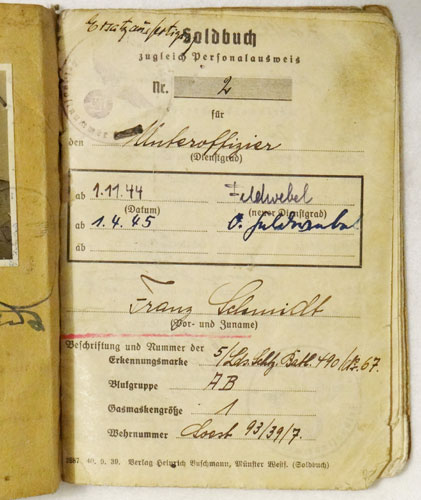 Ersatzausfertigung
Soldbuch
zugleich Personalausweis
Nr. 2
für
den Unteroffizier
(Dienstgrad)
ab 1.11.44 Feldwebel
(Datum) (neuer Dienstgrad)
ab 1.4.45 O. Feldwebel
ab
Franz Schmidt
(Vor- und Zuname)
Beschriftung und Nummer der
Erkennungsmarke 5/Lds.Schtz.Batl. 490/ 67.
Blutgruppe AB
Gasmaskengröße 1
Wehrnummer Soest 93/39/7.
40. 9. 39. Verlag Heinrich Buschmann, Münster Westf. (Soldbuch)